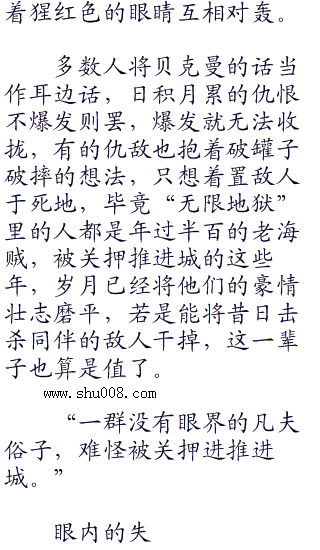 着猩红色的眼睛互相对轰。
多数人将贝克曼的话当
作耳边话，日积月累的仇恨
不爆发则罢，爆发就无法收
拢，有的仇敌也抱着破罐子
破摔的想法，只想着置敌人
于死地，毕竟“无限地狱”
里的人都是年过半百的老海
贼，被关押推进城的这些
年，岁月已经将他们的豪情
壮志磨平，若是能将昔日击
杀同伴的敌人干掉，这一辈
子也算是值了。
www.shu008.com
“一群没有眼界的凡夫
俗子，难怪被关押进推进
城。”
眼内的失